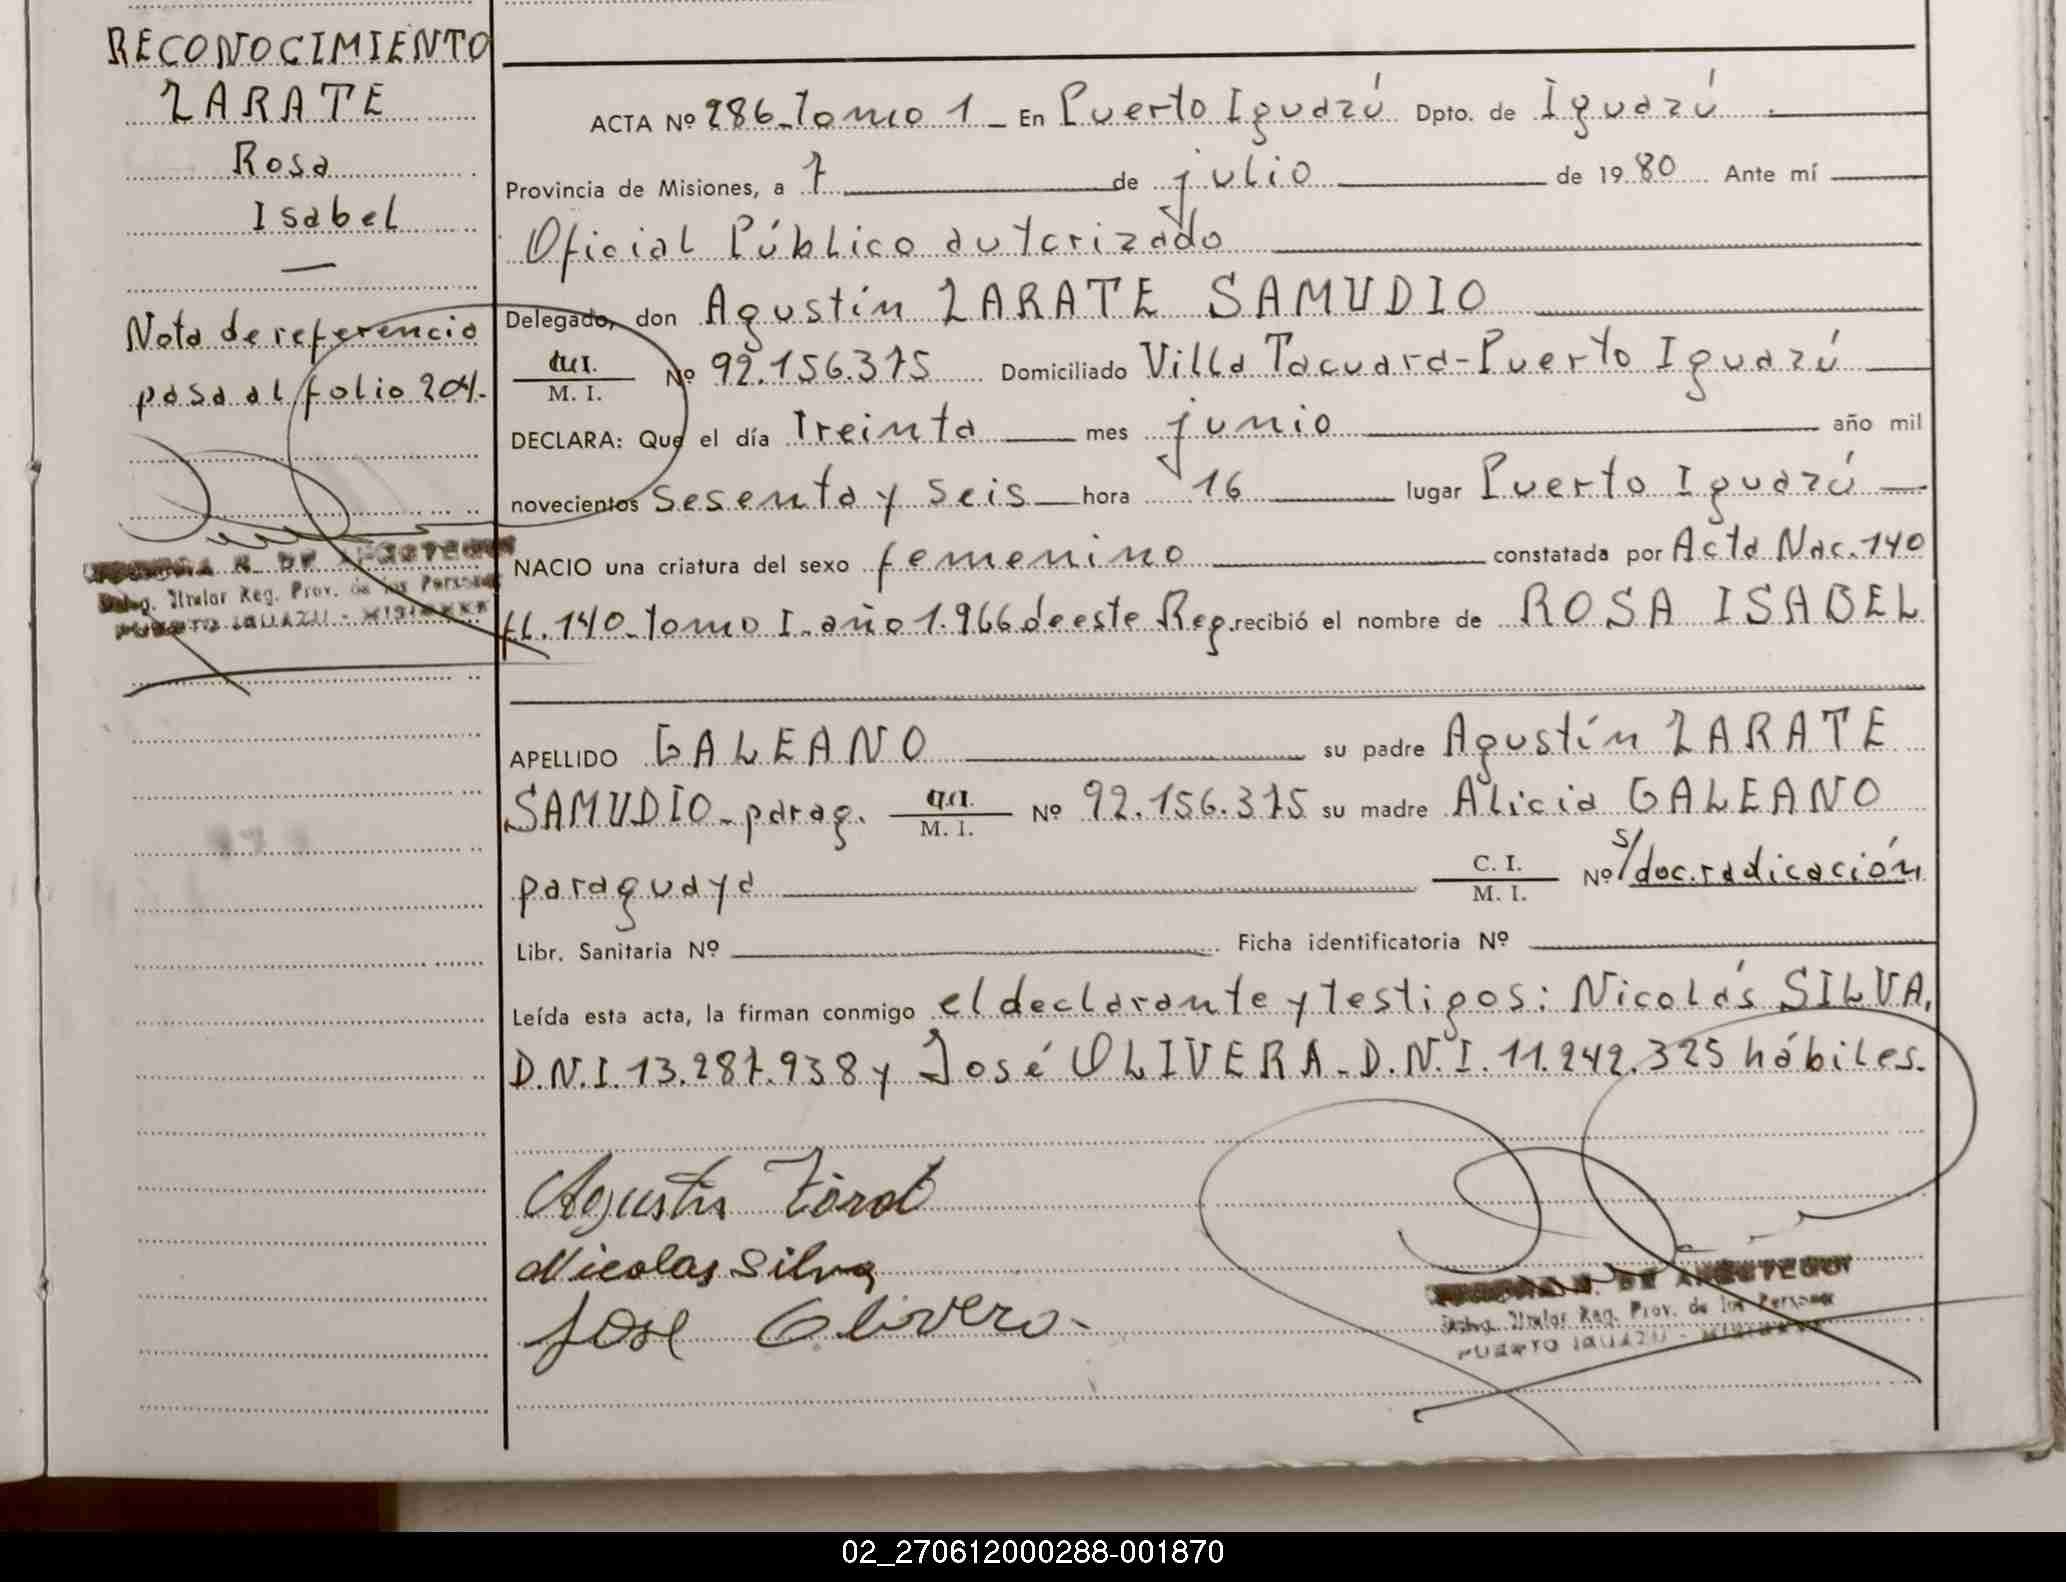 RECONOCIMIENTO
ZARATE
Rosa
Isabel
Nota de referencia
pasa al folio 204.
Titular Reg. Prov. de las Personas
PUERTO IGUAZU - MISIONES
ACTA Nº 286 Tomo 1 - En Puerto Iguazú Dpto. de Iguazú
Provincia de Misiones, a 7 de julio de 1980 Ante mí
Oficial Público autorizado
Delegado, don Agustín ZARATE SAMUDIO
M. I. Nº 92.156.375 Domiciliado Villa Tacuara-Puerto Iguazú
DECLARA: Que el día Treinta mes junio año mil
novecientos sesenta y seis hora 16 lugar Puerto Iguazú
NACIO una criatura del sexo femenino constatada por Acta Nac. 140
fl. 140-Tomo I-año 1.966 de este Reg. recibió el nombre de ROSA ISABEL
APELLIDO GALEANO su padre Agustín ZARATE
SAMUDIO-parag. M. I. Nº 92.156.375 su madre Alicia GALEANO
paraguaya C. I. M. I. Nº s/doc.radicación
Libr. Sanitaria Nº Ficha identificatoria Nº
Leída esta acta, la firman conmigo el declarante y testigos: Nicolás SILVA,
D.N.I. 13.287.938 y José OLIVERA-D.N.I. 11.242.325 hábiles.
Agustin
Nicolas Silva
Jose Olivero.
Titular Reg. Prov. de las Personas
PUERTO IGUAZU - MISIONES
02_270612000288-001870